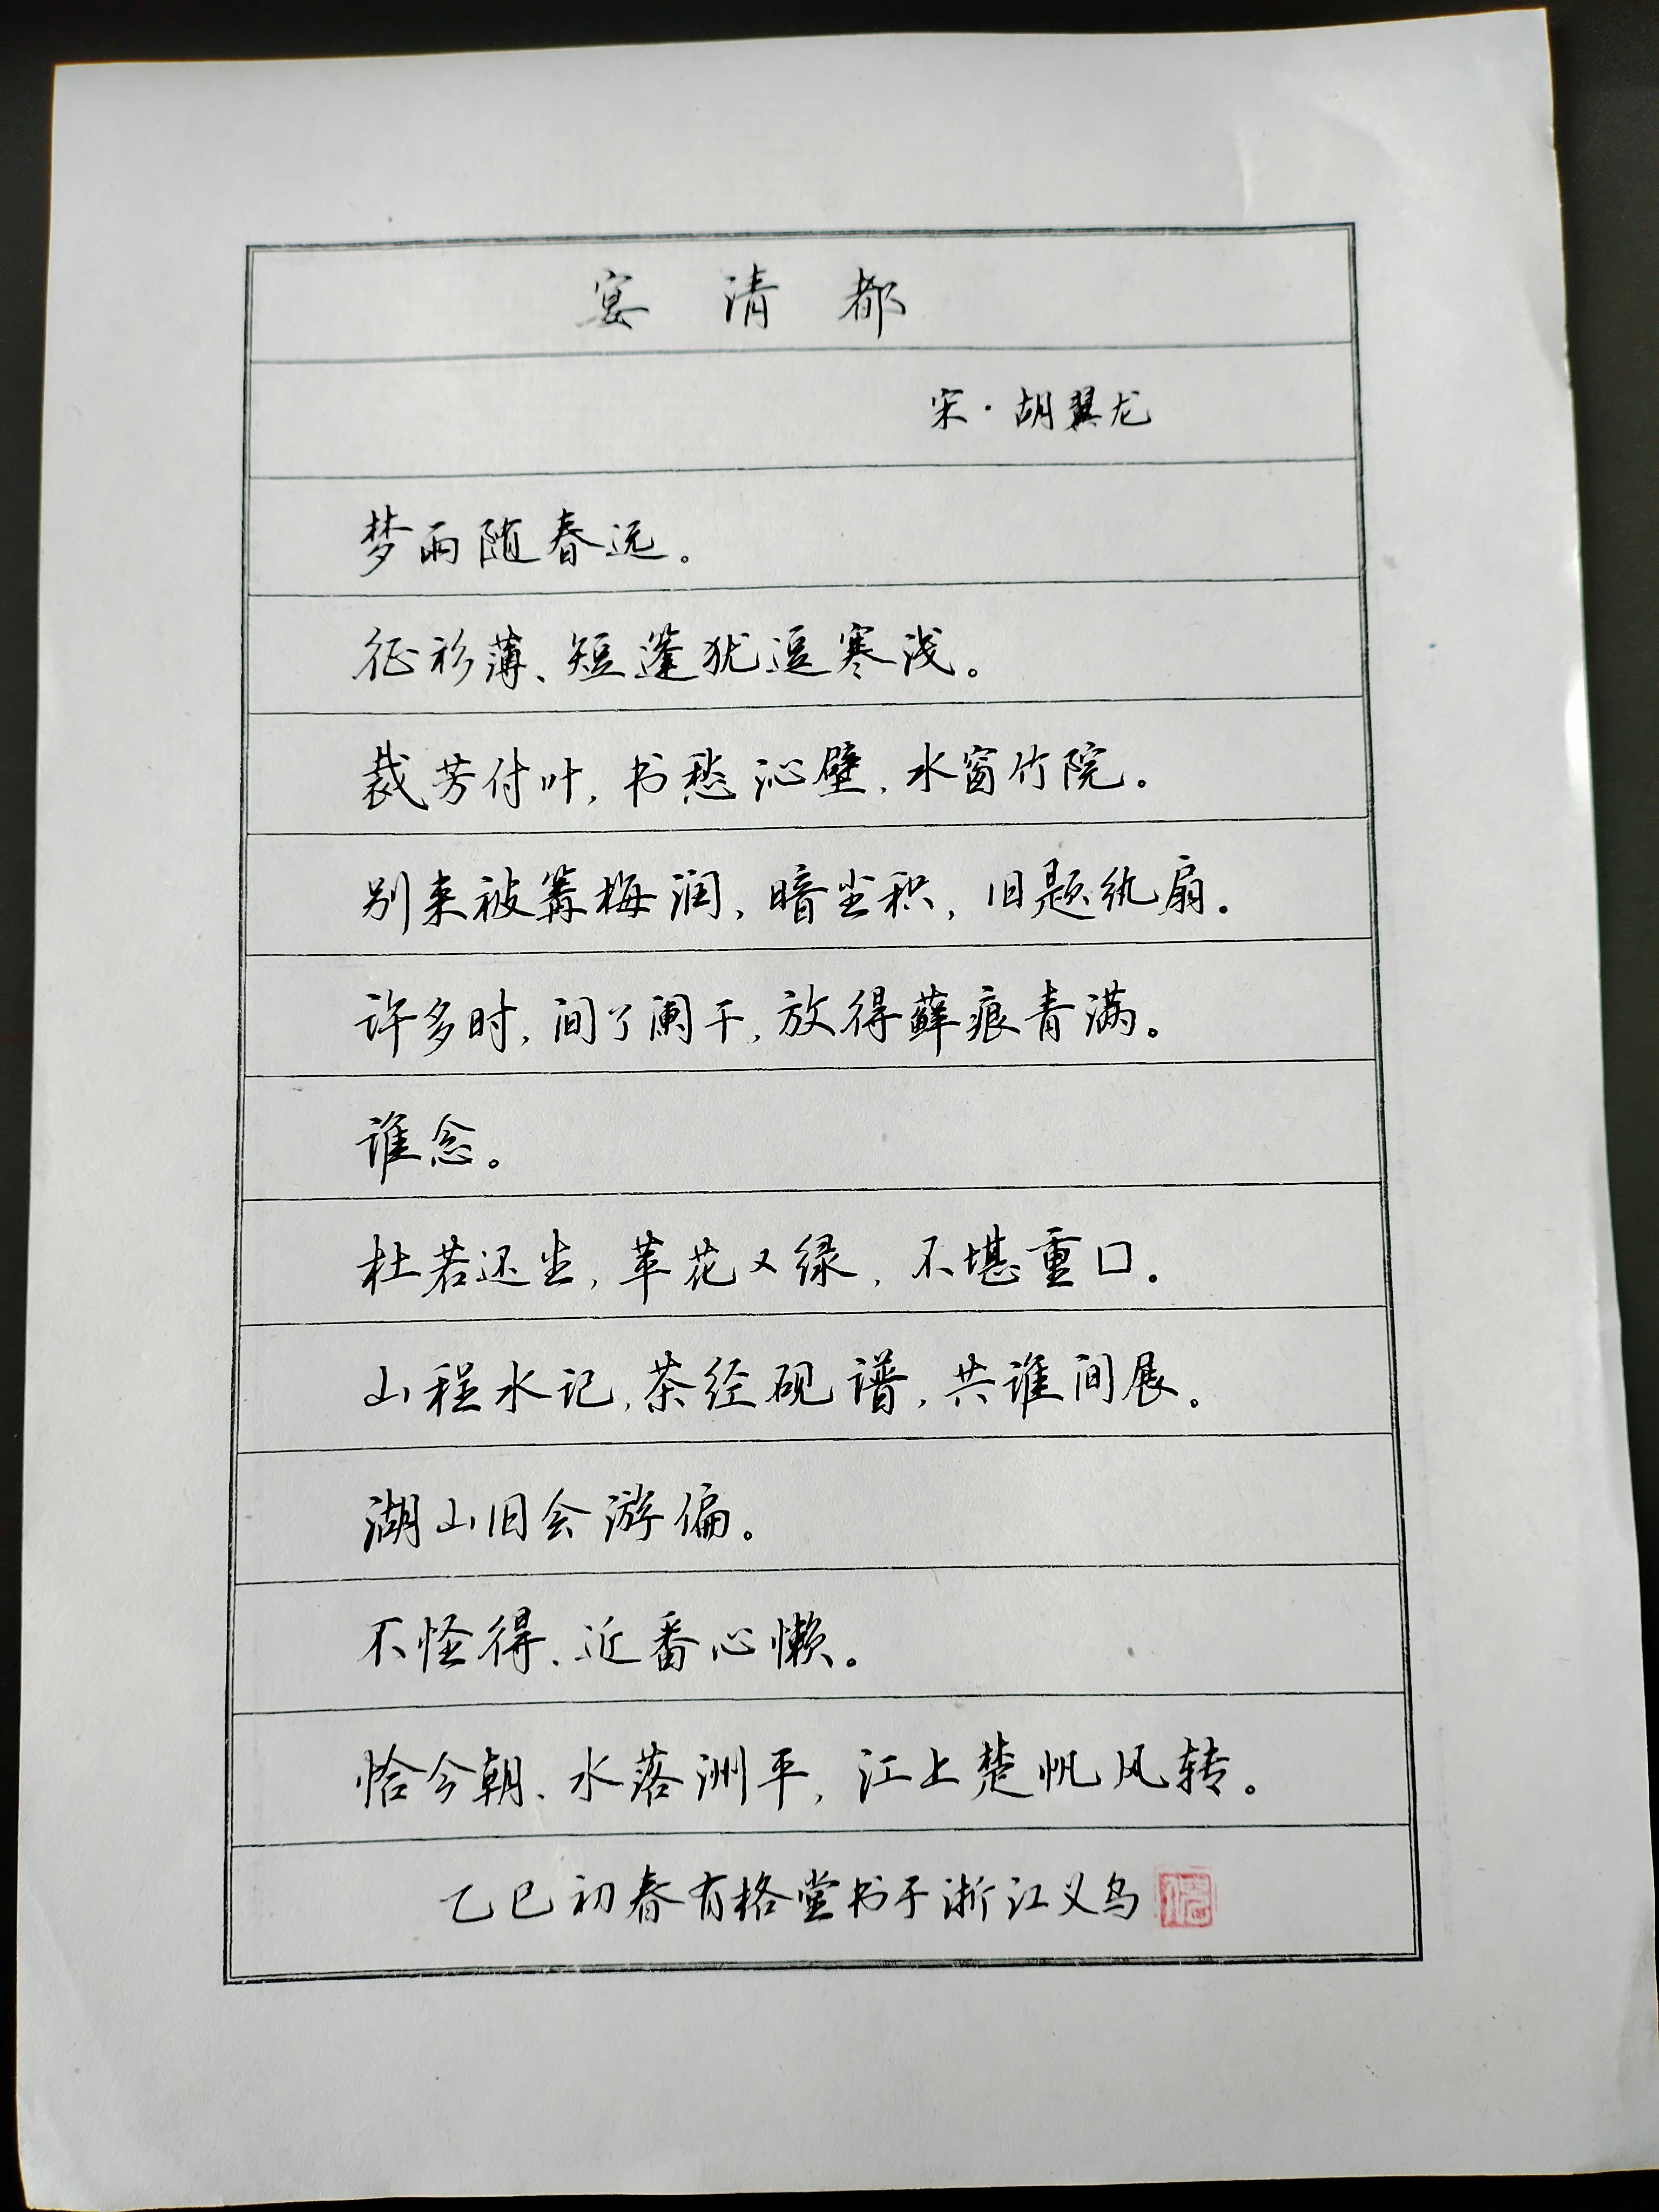 宴清都
宋·胡翼龙
梦雨随春远。
征衫薄、短篷犹逗寒浅。
裁芳付叶,书愁沁壁,水窗竹院。
别来被篝梅润,暗尘积,旧题纨扇。
许多时,间了阑干,放得藓痕青满。
谁念。
杜若还生,苹花又绿,不堪重口。
山程水记,茶经砚谱,共谁间展。
湖山旧会游偏。
不怪得、近番心懒。
恰今朝、水落洲平,江上楚帆风转。
乙巳初春有格堂书于浙江义乌